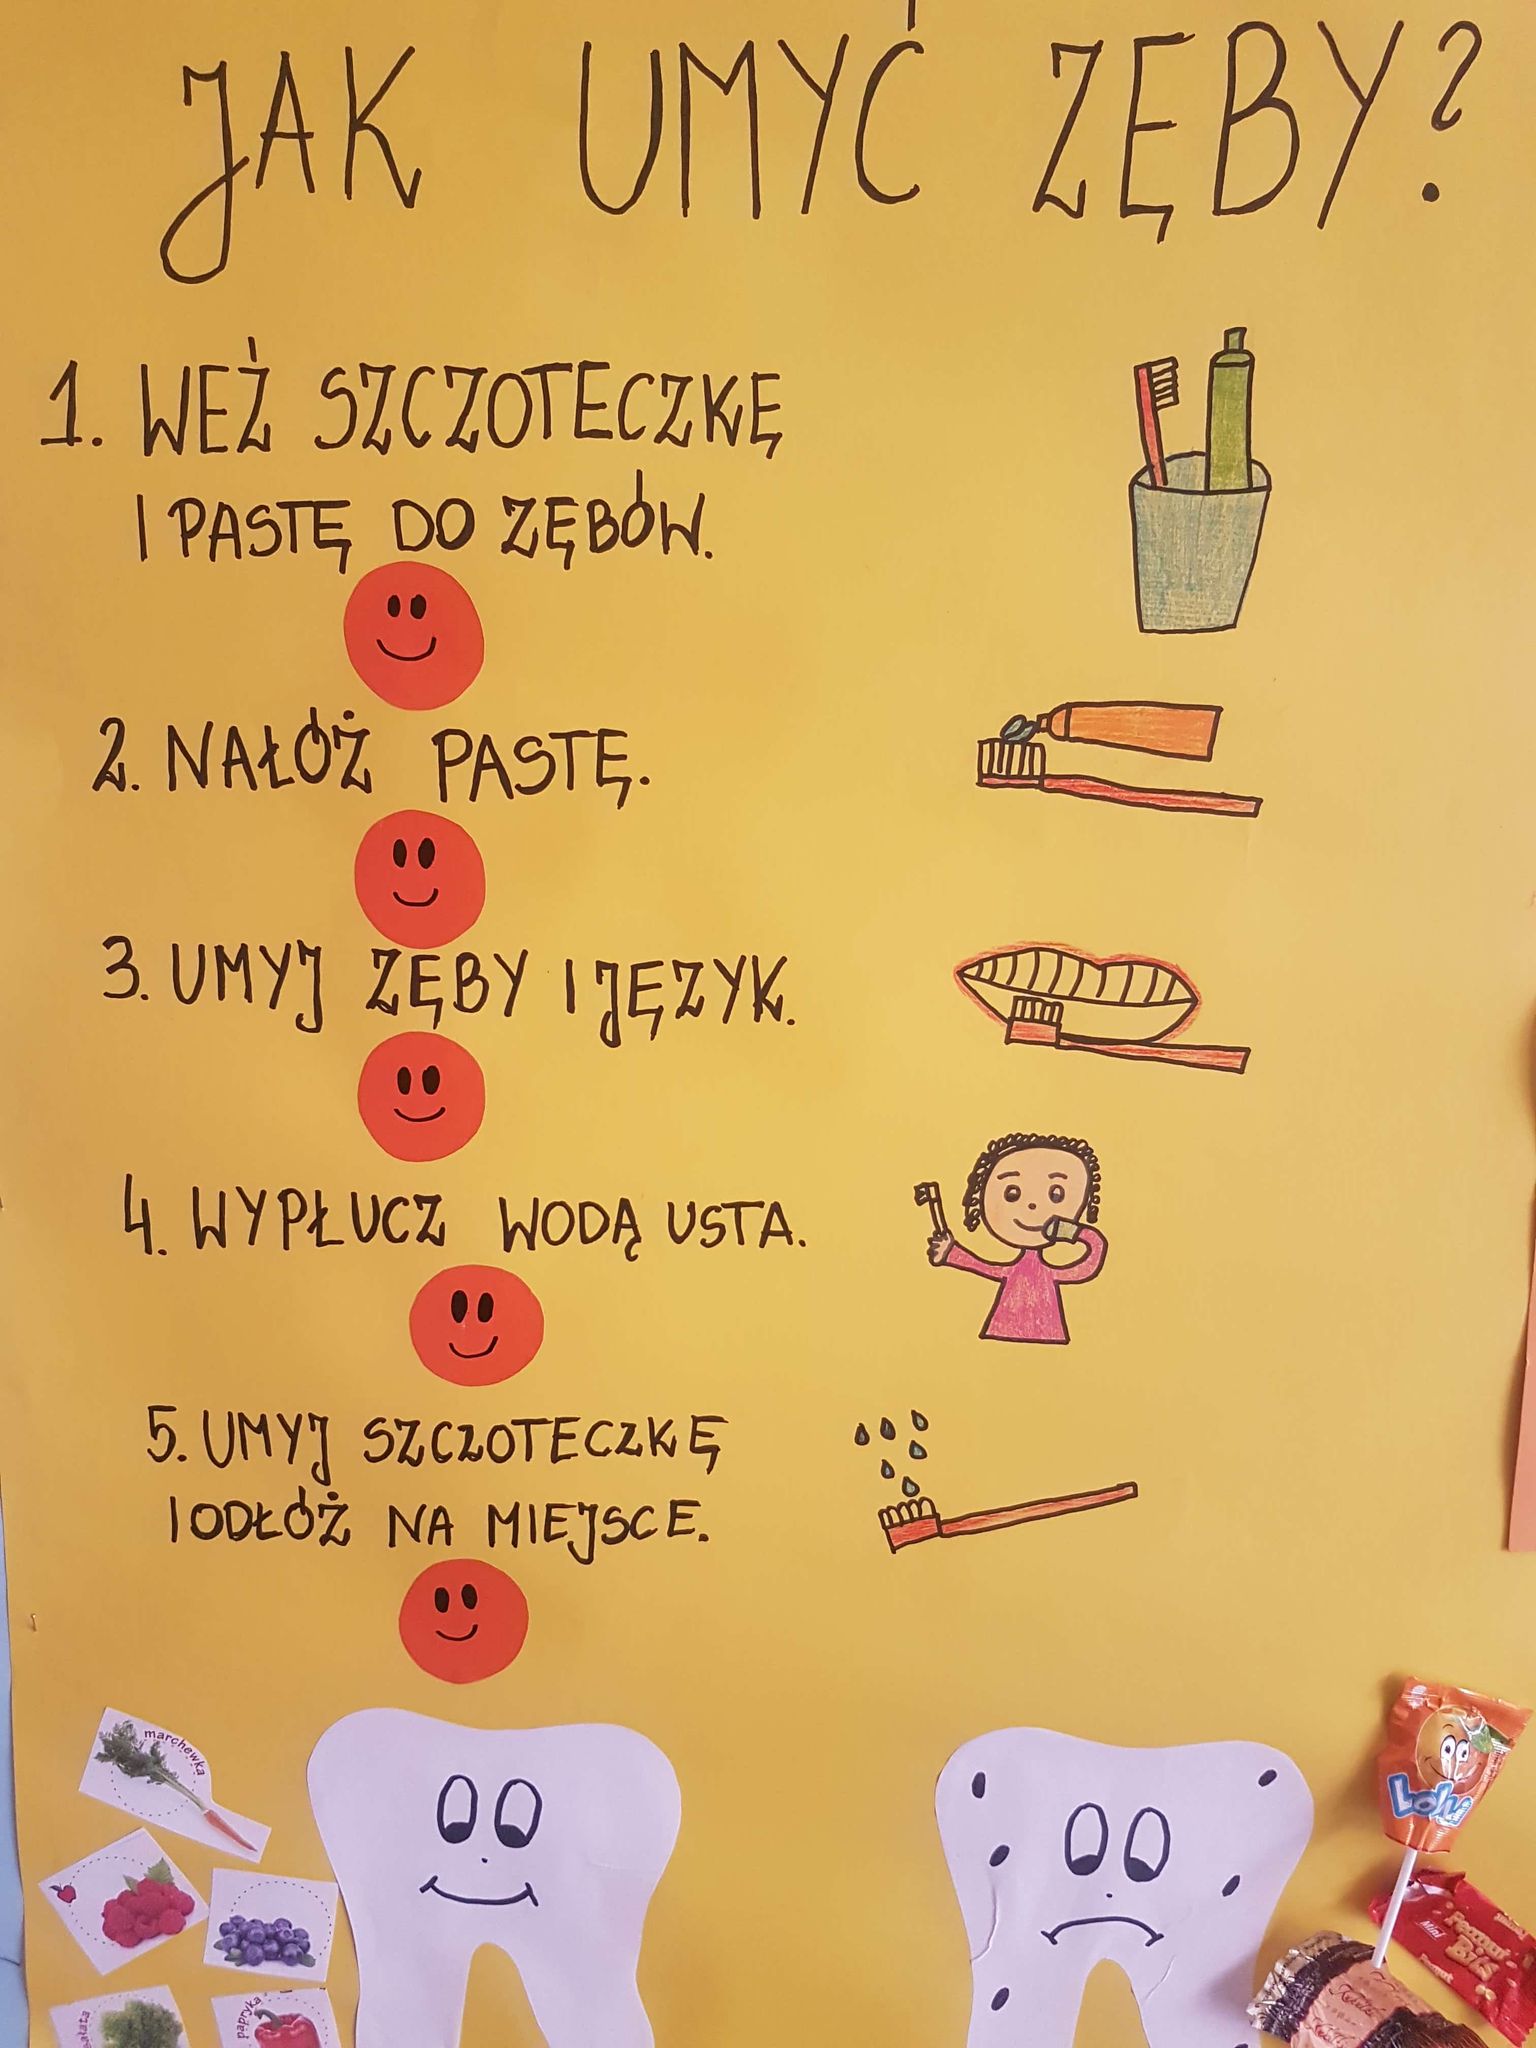 JAK UMYĆ ZĘBY?
1. WEŹ SZCZOTECZKĘ
I PASTĘ DO ZĘBÓW.
2. NAŁÓŻ PASTĘ.
3. UMYJ ZĘBY I JĘZYK.
4. WYPŁUCZ WODĄ USTA.
5. UMYJ SZCZOTECZKĘ
I ODŁÓŻ NA MIEJSCE.
marchewka
papryka
Mini